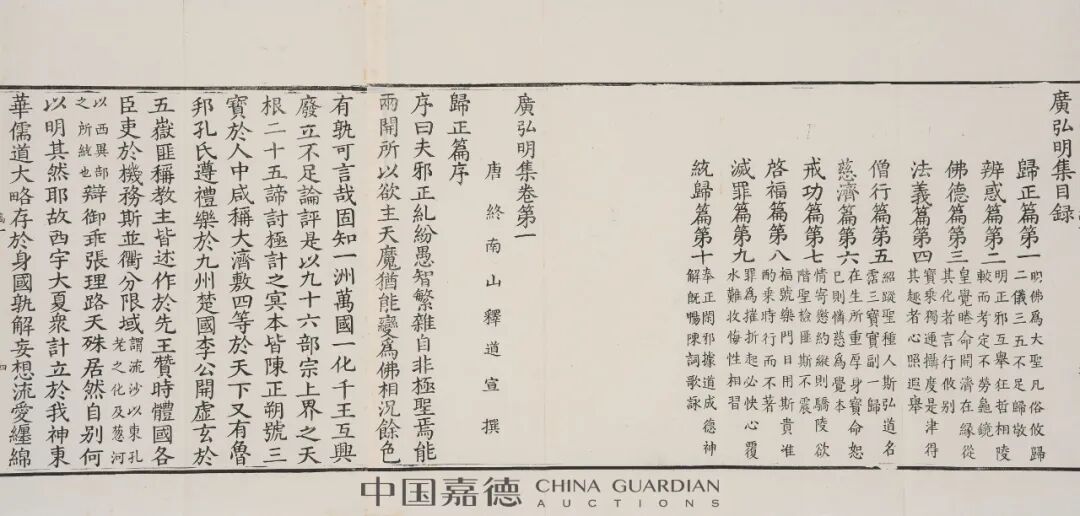 廣弘明集目録
歸正篇第一 明佛爲大聖凡俗攸歸
二儀三五不足歸敬
辨惑篇第二 明正邪互舉狂哲相陵
較而考定不勞龜鏡
佛德篇第三 皇覺睠命開濟在緣從
其化者言行攸别
法義篇第四 寶乘獨運攝度是津得
其趣者心照遐舉
僧行篇第五 紹蹤聖種人斯弘道名
霑三寶實副一歸
慈濟篇第六 在生所重厚身寶命恕
已則憐慈爲覺本
戒功篇第七 情寄懲約縱則驕陵欲
階聖檢匪斯不震
啓福篇第八 福號樂門日用斯貴准
酌乘時行而不著
滅罪篇第九 罪爲摧折起必快心覆
水難收悔性相習
統歸篇第十 奉正閑邪據道成德神
解既暢陳詞歌詠
廣弘明集卷第一
唐終南山釋道宣撰
歸正篇序
序曰夫邪正糺紛愚智繁雜自非極聖焉能
兩開所以欲主天魔猶能變爲佛相況餘色
有孰可言哉固知一洲萬國一化千王互興
廢立不足論評是以九十六部宗上界之天
根二十五諦討極計之冥本皆陳正朔號三
寶於人中咸稱大濟敷四等於天下又有魯
邦孔氏遵禮樂於九州楚國李公開虛玄於
五嶽匪稱教主皆述作於先王贊時體國各
臣吏於機務斯並衢分限域謂流沙以東孔
老之化及葱河
以西異部
之所統也辯御乖張理路天殊居然自别何
以明其然耶故西宇大夏衆計立於我神東
華儒道大略存於身國孰解妄想流愛纏綿
中国嘉德 CHINA GUARDIAN
AUCTIONS